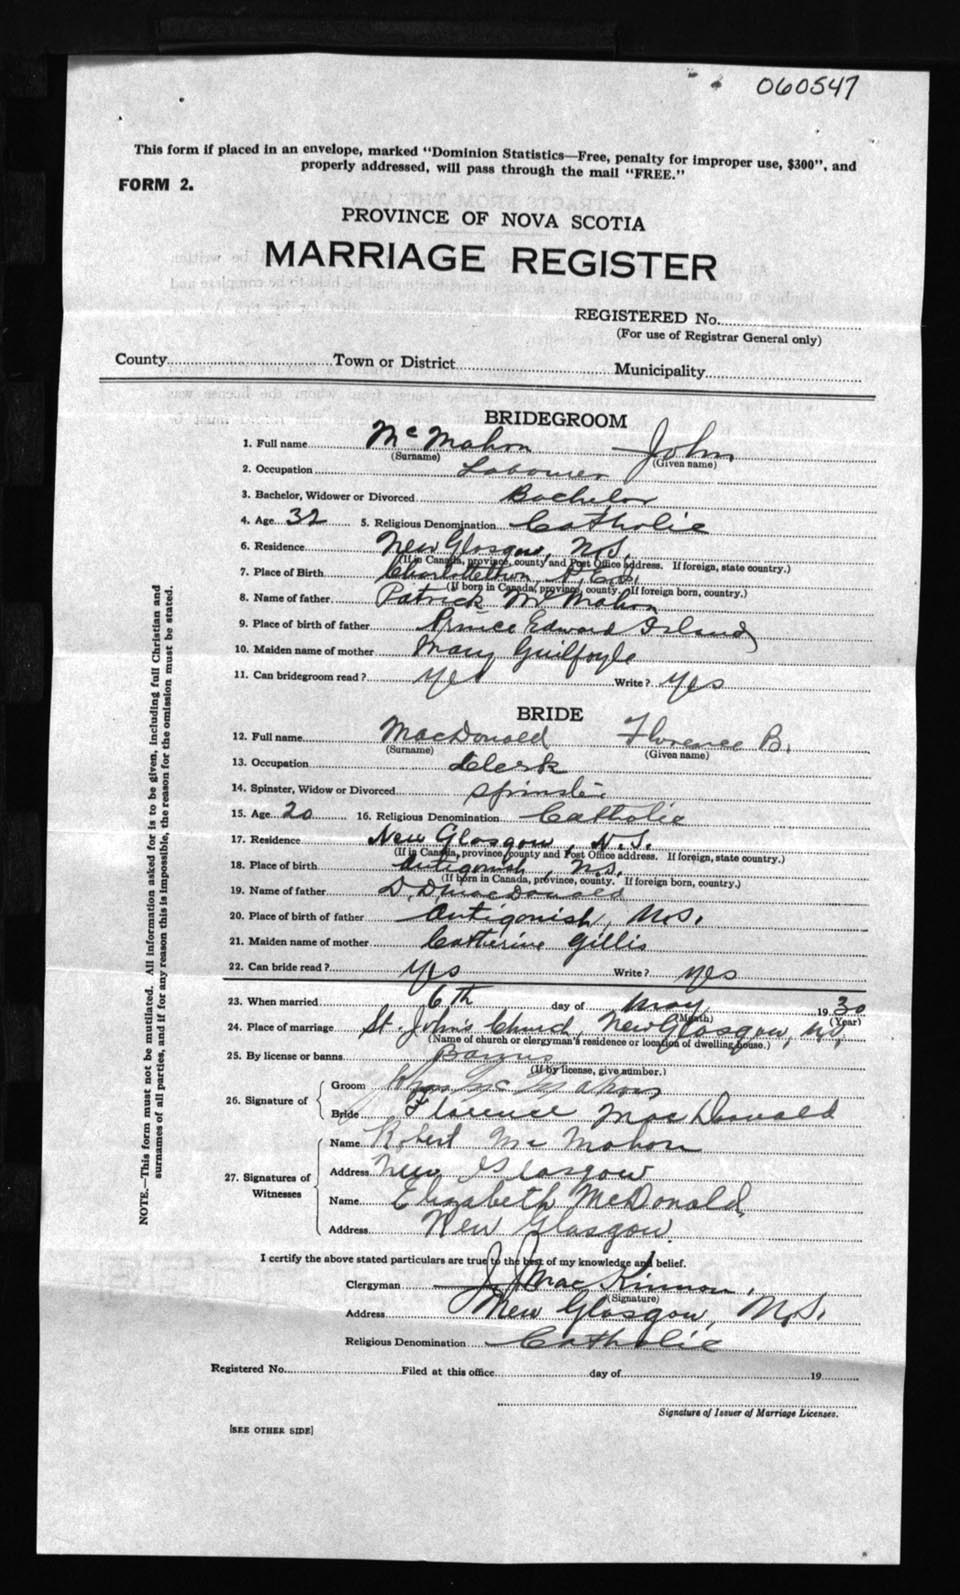 060547
This form if placed in an envelope, marked "Dominion Statistics—Free, penalty for improper use, $300", and
properly addressed, will pass through the mail "FREE."
FORM 2.
PROVINCE OF NOVA SCOTIA
MARRIAGE REGISTER
REGISTERED No.
(For use of Registrar General only)
County Town or District Municipality
BRIDEGROOM
1. Full name McMahon John
(Surname) (Given name)
2. Occupation Labourer
3. Bachelor, Widower or Divorced Bachelor
4. Age 32 5. Religious Denomination Catholic
6. Residence New Glasgow, N.S.
(If in Canada, province, county and Post Office address. If foreign, state country.)
7. Place of Birth Charlottetown,
(If born in Canada, province, county. If foreign born, country.)
8. Name of father Patrick McMahon
9. Place of birth of father Prince Edward Island
10. Maiden name of mother Mary Guilfoyle
11. Can bridegroom read? yes Write? yes
BRIDE
12. Full name MacDonald Florence B.
(Surname) (Given name)
13. Occupation Clerk
14. Spinster, Widow or Divorced Spinster
15. Age 20 16. Religious Denomination Catholic
17. Residence New Glasgow, N.S.
(If in Canada, province, county and Post Office address. If foreign, state country.)
18. Place of birth Antigonish, N.S.
(If born in Canada, province, county. If foreign born, country.)
19. Name of father D. D. MacDonald
20. Place of birth of father Antigonish, N.S.
21. Maiden name of mother Catherine Gillis
22. Can bride read? yes Write? yes
23. When married 6th day of May 1930
(Month) (Year)
24. Place of marriage St. John's Church, New Glasgow, N.S.
(Name of church or clergyman's residence or location of dwelling house.)
25. By license or banns Banns
(If by license, give number.)
26. Signature of Groom McMahon
Bride Florence MacDonald
27. Signatures of Witnesses
Name Robert McMahon
Address New Glasgow
Name Elizabeth McDonald
Address New Glasgow.
I certify the above stated particulars are true to the best of my knowledge and belief.
Clergyman J. J. MacKinnon.
(Signature)
Address New Glasgow, N.S.
Religious Denomination Catholic
Registered No. Filed at this office day of 19
Signature of Issuer of Marriage Licenses.
[SEE OTHER SIDE]
NOTE.—This form must not be mutilated. All information asked for is to be given, including full Christian and
surnames of all parties, and if for any reason this is impossible, the reason for the omission must be stated.